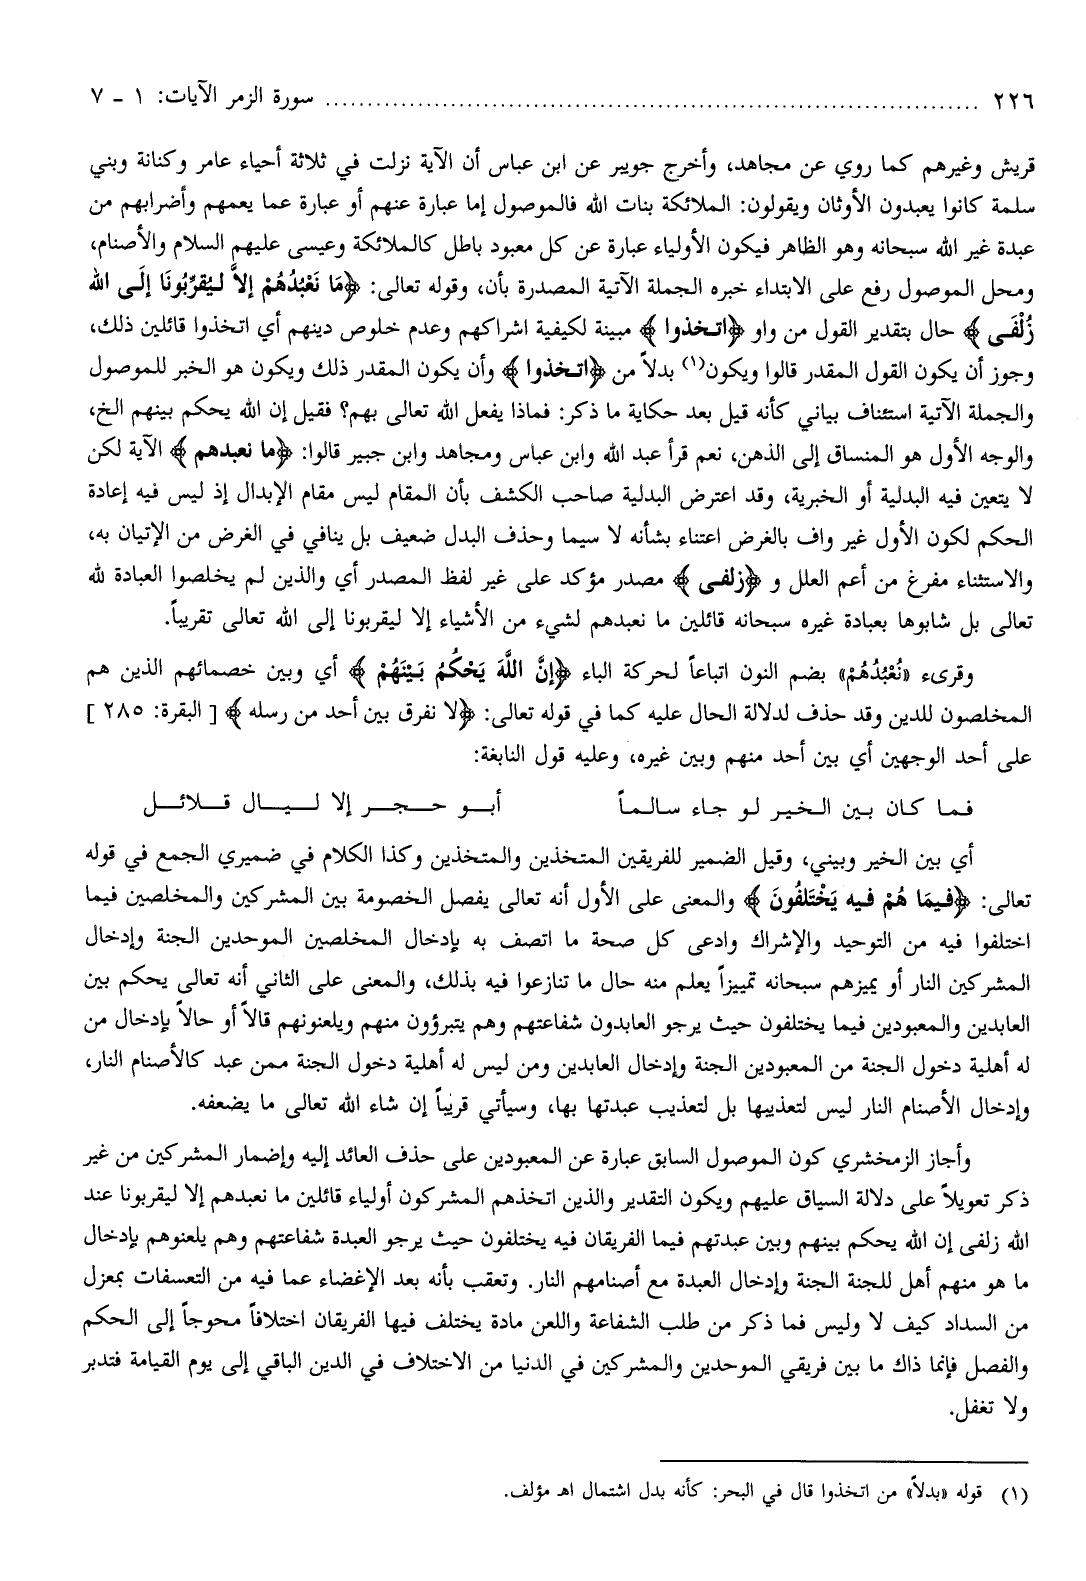 ٢٢٦ ............................................................ سورة الزمر الآيات: ١ - ٧
قريش وغيرهم كما روي عن مجاهد، وأخرج جويبر عن ابن عباس أن الآية نزلت في ثلاثة أحياء عامر وكنانة وبني
سلمة كانوا يعبدون الأوثان ويقولون: الملائكة بنات الله فالموصول إما عبارة عنهم أو عبارة عما يعمهم وأضرابهم من
عبدة غير الله سبحانه وهو الظاهر فيكون الأولياء عبارة عن كل معبود باطل كالملائكة وعيسى عليهم السلام والأصنام،
ومحل الموصول رفع على الابتداء خبره الجملة الآتية المصدرة بأن، وقوله تعالى: ﴿مَا نَعْبُدُهُمْ إلاَّ ليُقَرِّبُونَا إلَى الله
زُلْفَى﴾ حال بتقدير القول من واو ﴿اتخذوا﴾ مبينة لكيفية اشراكهم وعدم خلوص دينهم أي اتخذوا قائلين ذلك،
وجوز أن يكون القول المقدر قالوا ويكون(١) بدلاً من ﴿اتخذوا﴾ وأن يكون المقدر ذلك ويكون هو الخبر للموصول
والجملة الآتية استئناف بياني كأنه قيل بعد حكاية ما ذكر: فماذا يفعل الله تعالى بهم؟ فقيل إن الله يحكم بينهم الخ،
والوجه الأول هو المنساق إلى الذهن، نعم قرأ عبد الله وابن عباس ومجاهد وابن جبير قالوا: ﴿ما نعبدهم﴾ الآية لكن
لا يتعين فيه البدلية أو الخبرية، وقد اعترض البدلية صاحب الكشف بأن المقام ليس مقام الإبدال إذ ليس فيه إعادة
الحكم لكون الأول غير واف بالغرض اعتناء بشأنه لا سيما وحذف البدل ضعيف بل ينافي في الغرض من الإتيان به،
والاستثناء مفرغ من أعم العلل و ﴿زلفى﴾ مصدر مؤكد على غير لفظ المصدر أي والذين لم يخلصوا العبادة لله
تعالى بل شابوها بعبادة غيره سبحانه قائلين ما نعبدهم لشيء من الأشياء إلا ليقربونا إلى الله تعالى تقريباً.
وقرىء «نُعْبُدُهُمْ» بضم النون اتباعاً لحركة الباء ﴿إنَّ اللَّهَ يَحْكُمُ بَيْنَهُمْ﴾ أي وبين خصمائهم الذين هم
المخلصون للدين وقد حذف لدلالة الحال عليه كما في قوله تعالى: ﴿لا نفرق بين أحد من رسله﴾ [ البقرة: ٢٨٥ ]
على أحد الوجهين أي بين أحد منهم وبين غيره، وعليه قول النابغة:
فما كان بين الخير لو جاء سالماً أبو حجر إلا ليال قلائل
أي بين الخير وبيني، وقيل الضمير للفريقين المتخذين والمتخذين وكذا الكلام في ضميري الجمع في قوله
تعالى: ﴿فيمَا هُمْ فيه يَخْتَلفُونَ﴾ والمعنى على الأول أنه تعالى يفصل الخصومة بين المشركين والمخلصين فيما
اختلفوا فيه من التوحيد والإشراك وادعى كل صحة ما اتصف به بإدخال المخلصين الموحدين الجنة وإدخال
المشركين النار أو يميزهم سبحانه تمييزاً يعلم منه حال ما تنازعوا فيه بذلك، والمعنى على الثاني أنه تعالى يحكم بين
العابدين والمعبودين فيما يختلفون حيث يرجو العابدون شفاعتهم وهم يتبرؤون منهم ويلعنونهم قالاً أو حالاً بإدخال من
له أهلية دخول الجنة من المعبودين الجنة وإدخال العابدين ومن ليس له أهلية دخول الجنة ممن عبد كالأصنام النار،
وإدخال الأصنام النار ليس لتعذيبها بل لتعذيب عبدتها بها، وسيأتي قريباً إن شاء الله تعالى ما يضعفه.
وأجاز الزمخشري كون الموصول السابق عبارة عن المعبودين على حذف العائد إليه وإضمار المشركين من غير
ذكر تعويلاً على دلالة السياق عليهم ويكون التقدير والذين اتخذهم المشركون أولياء قائلين ما نعبدهم إلا ليقربونا عند
الله زلفى إن الله يحكم بينهم وبين عبدتهم فيما الفريقان فيه يختلفون حيث يرجو العبدة شفاعتهم وهم يلعنوهم بإدخال
ما هو منهم أهل للجنة الجنة وإدخال العبدة مع أصنامهم النار. وتعقب بأنه بعد الإغضاء عما فيه من التعسفات بمعزل
من السداد كيف لا وليس فما ذكر من طلب الشفاعة واللعن مادة يختلف فيها الفريقان اختلافاً محوجاً إلى الحكم
والفصل فإنما ذاك ما بين فريقي الموحدين والمشركين في الدنيا من الاختلاف في الدين الباقي إلى يوم القيامة فتدبر
ولا تغفل.
(١) قوله «بدلاً» من اتخذوا قال في البحر: كأنه بدل اشتمال اهـ مؤلف.